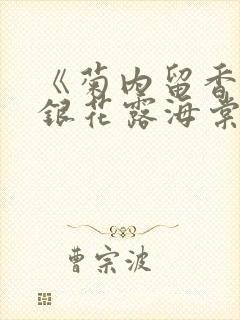 《菊内留香
银花露海棠
曹宗波